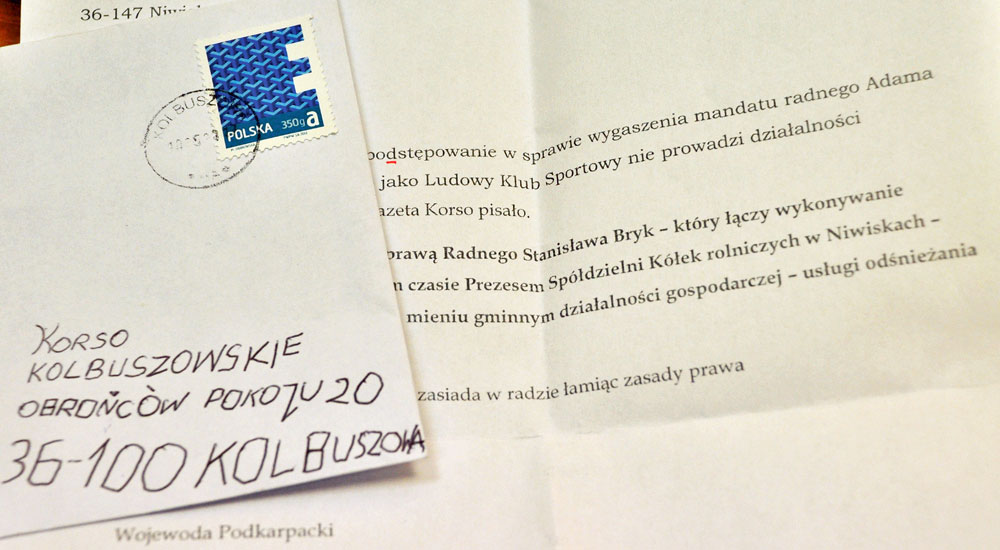 36-147
KOLBUSZOWA
POLSKA 350g a
KORSO
KOLBUSZOWSKIE
OBROŃCÓW POKOJU 20
36-100 KOLBUSZOWA
podstępowanie w sprawie wygaszenia mandatu radnego Adama
jako Ludowy Klub Sportowy nie prowadzi działalności
azeta Korso pisało.
prawą Radnego Stanisława Bryk – który łączy wykonywanie
m czasie Prezesem Spółdzielni Kółek rolniczych w Niwiskach –
mieniu gminnym działalności gospodarczej – usługi odśnieżania
zasiada w radzie łamiąc zasady prawa
Wojewoda Podkarpacki